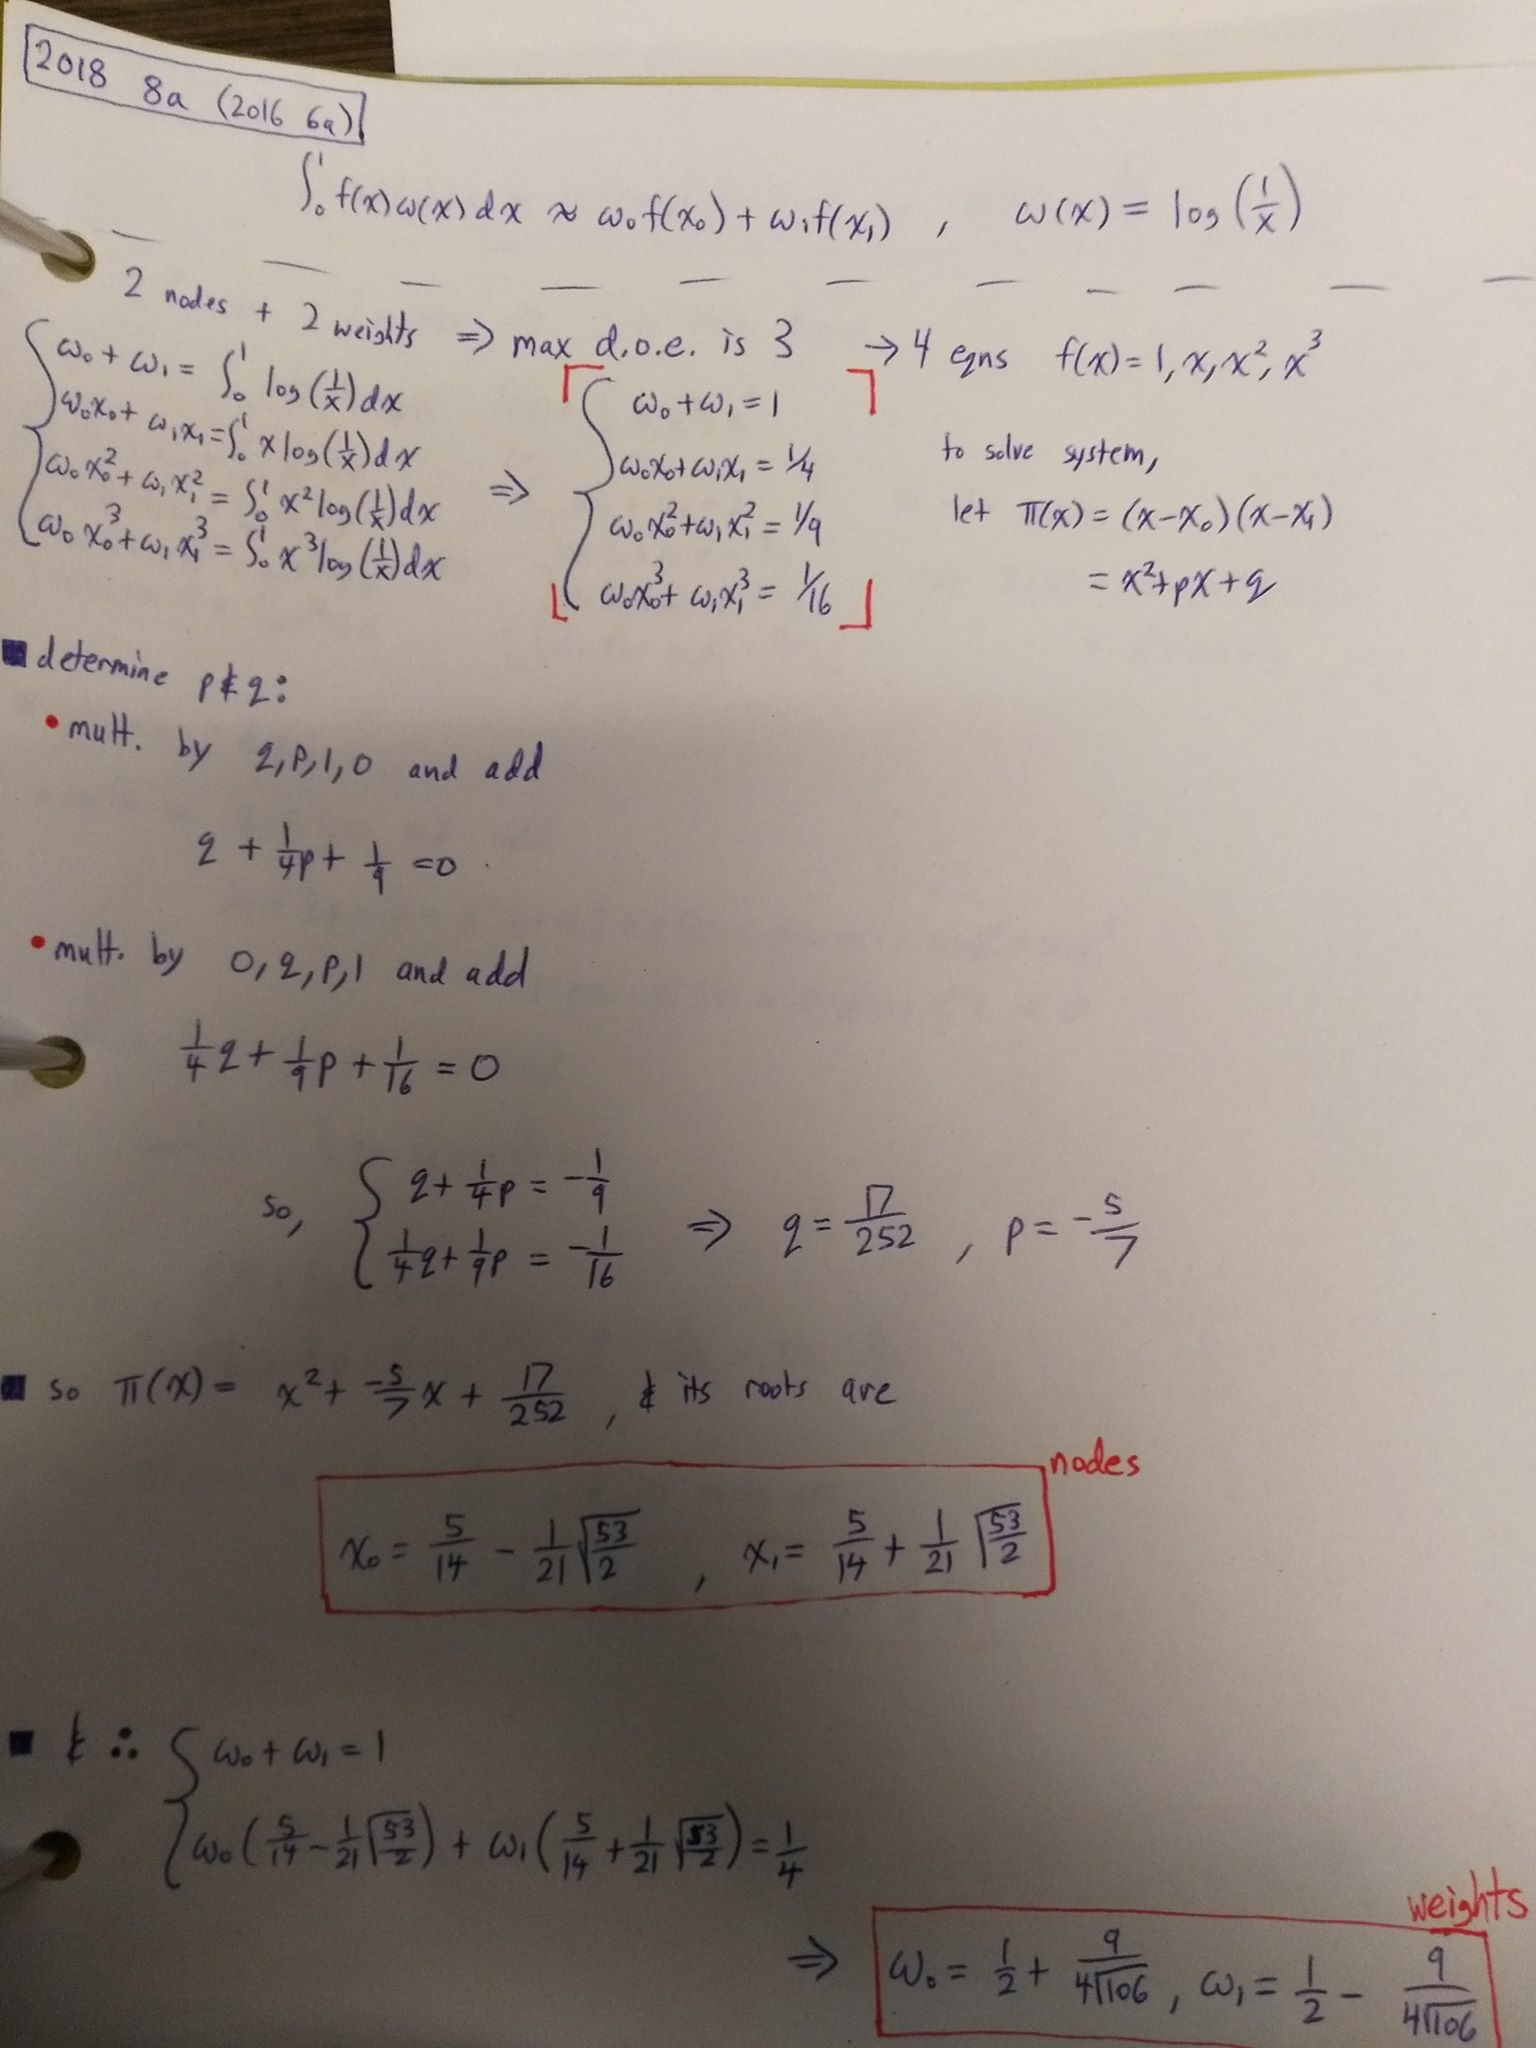 2018 8a (2016 6a)
∫₀¹ f(x)ω(x)dx ≈ ω₀f(x₀) + ω₁f(x₁) , ω(x) = log(1/x)
2 nodes + 2 weights ⇒ max d.o.e. is 3 → 4 eqns f(x) = 1, x, x², x³
ω₀ + ω₁ = ∫₀¹ log(1/x)dx
ω₀x₀ + ω₁x₁ = ∫₀¹ x log(1/x)dx
ω₀x₀² + ω₁x₁² = ∫₀¹ x² log(1/x)dx
ω₀x₀³ + ω₁x₁³ = ∫₀¹ x³ log(1/x)dx
⇒
ω₀ + ω₁ = 1
ω₀x₀ + ω₁x₁ = 1/4
ω₀x₀² + ω₁x₁² = 1/9
ω₀x₀³ + ω₁x₁³ = 1/16
to solve system,
let π(x) = (x-x₀)(x-x₁)
= x² + px + q
■ determine p & q:
• mult. by q, p, 1, 0 and add
q + 1/4 p + 1/9 = 0
• mult. by 0, q, p, 1 and add
1/4 q + 1/9 p + 1/16 = 0
so, { q + 1/4 p = -1/9
1/4 q + 1/9 p = -1/16 ⇒ q = 17/252 , p = -5/7
■ so π(x) = x² + -5/7 x + 17/252 , & its roots are
nodes
x₀ = 5/14 - 1/21 √(53/2) , x₁ = 5/14 + 1/21 √(53/2)
■ & ∴ { ω₀ + ω₁ = 1
ω₀(5/14 - 1/21 √(53/2)) + ω₁(5/14 + 1/21 √(53/2)) = 1/4
weights
⇒ ω₀ = 1/2 + 9/(4√106) , ω₁ = 1/2 - 9/(4√106)